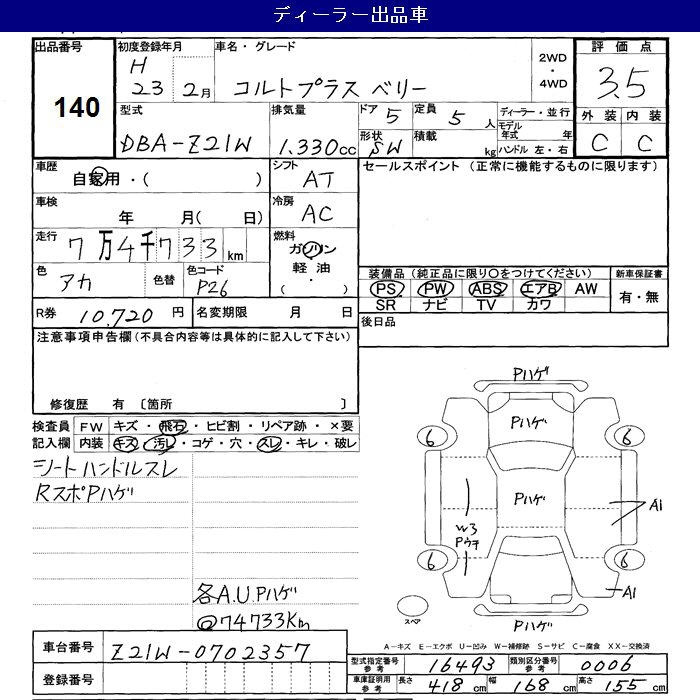 ディーラー出品車
出品番号
140
初度登録年月
H
23 2月
車名・グレード
コルトプラス ベリー
2WD
・
4WD
評価点
3.5
外装 内装
C C
型式
DBA-Z21W
排気量
1.330cc
ドア 5
形状 SW
定員 5 人
積載 kg
ディーラー・並行
モデル年式 年
ハンドル 左・右
車歴
自家用・( )
シフト
AT
車検
年 月( 日)
冷房
AC
走行
7万4千733km
燃料
ガソリン
軽油
( ・ )
色
アカ
色替
色コード
P26
セールスポイント (正常に機能するものに限ります)
装備品 (純正品に限り○をつけてください)
PS PW ABS エアB AW
SR ナビ TV カワ
新車保証書
有・無
R券 10.720 円
名変期限 月 日
後日品
注意事項申告欄(不具合内容等は具体的に記入して下さい)
修復歴 有 〔箇所 〕
検査員
記入欄
FW キズ・飛石・ヒビ割・リペア跡・×要
内装 キズ・汚レ・コゲ・穴・スレ・キレ・破レ
シートハンドルスレ
RスポPハゲ
各A.U Pハゲ
@74733Km
Pハゲ
Pハゲ
6 6
Pハゲ
W3
Pウチ
A1
6 6
A1
スペア
Pハゲ
A-キズ E-エクボ U-凹み W-補修跡 S-サビ C-腐食 XX-交換済
車台番号 Z21W-0702357
登録番号
型式指定番号 参考 16493
類別区分番号 参考 0006
車庫証明用 参考 長さ 418 cm 幅 168 cm 高さ 155 cm